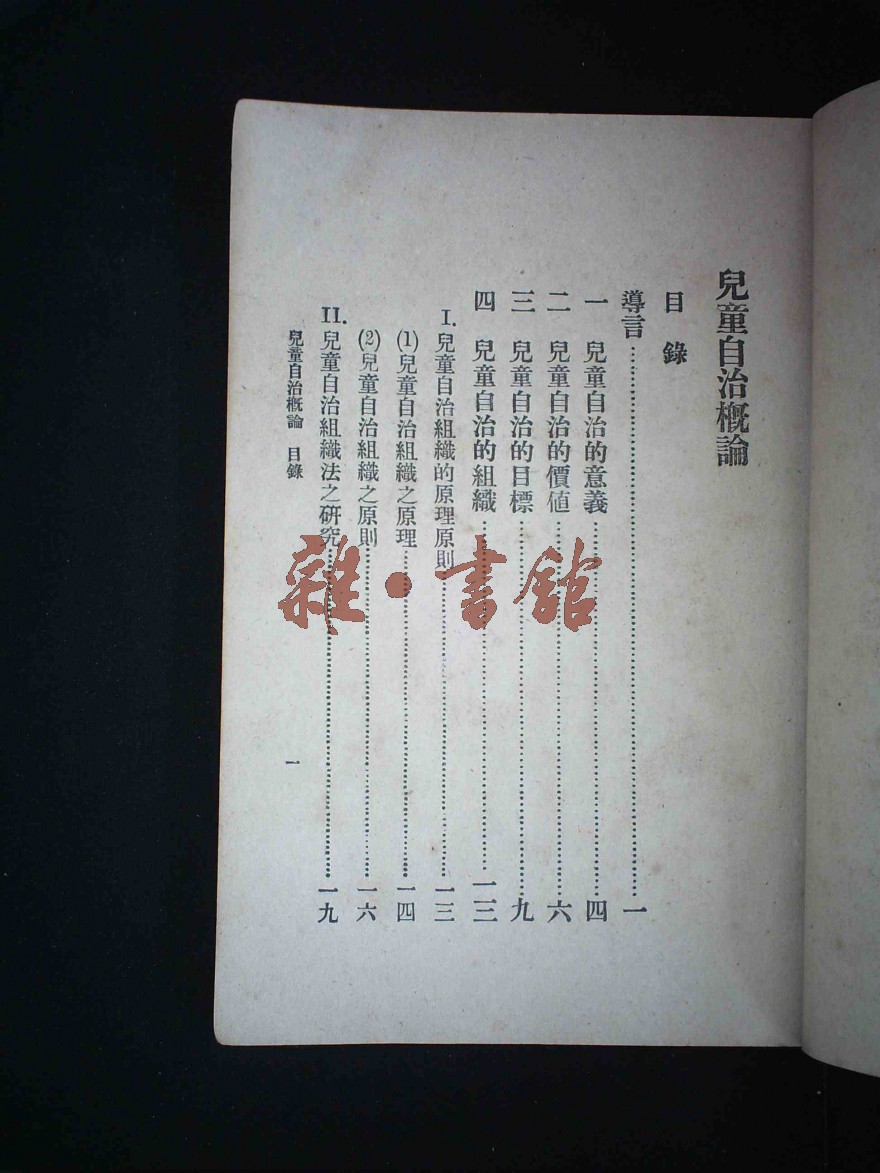 兒童自治槪論
目錄
導言……一
一 兒童自治的意義……四
二 兒童自治的價値……六
三 兒童自治的目標……九
四 兒童自治的組織……一三
I.兒童自治組織的原理原則……一三
(1)兒童自治組織之原理……一四
(2)兒童自治組織之原則……一六
II.兒童自治組織法之研究……一九
兒童自治槪論 目錄 一
雜·書館